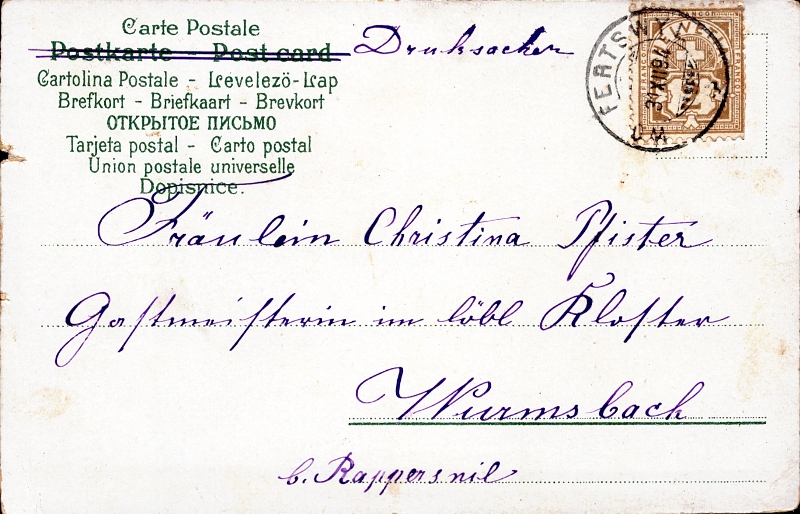 Carte Postale
Postkarte - Post card Druksachen
Cartolina Postale - Levelezö-Lap
Brefkort - Briefkaart - Brevkort
ОТКРЫТОЕ ПИСЬМО
Tarjeta postal - Carto postal
Union postale universelle
Dopisnice.
FRANCO FRANCO
Fräulein Christina Pfister
Gastmeisterin im löbl Kloster
Wurmsbach
b. Rapperswil